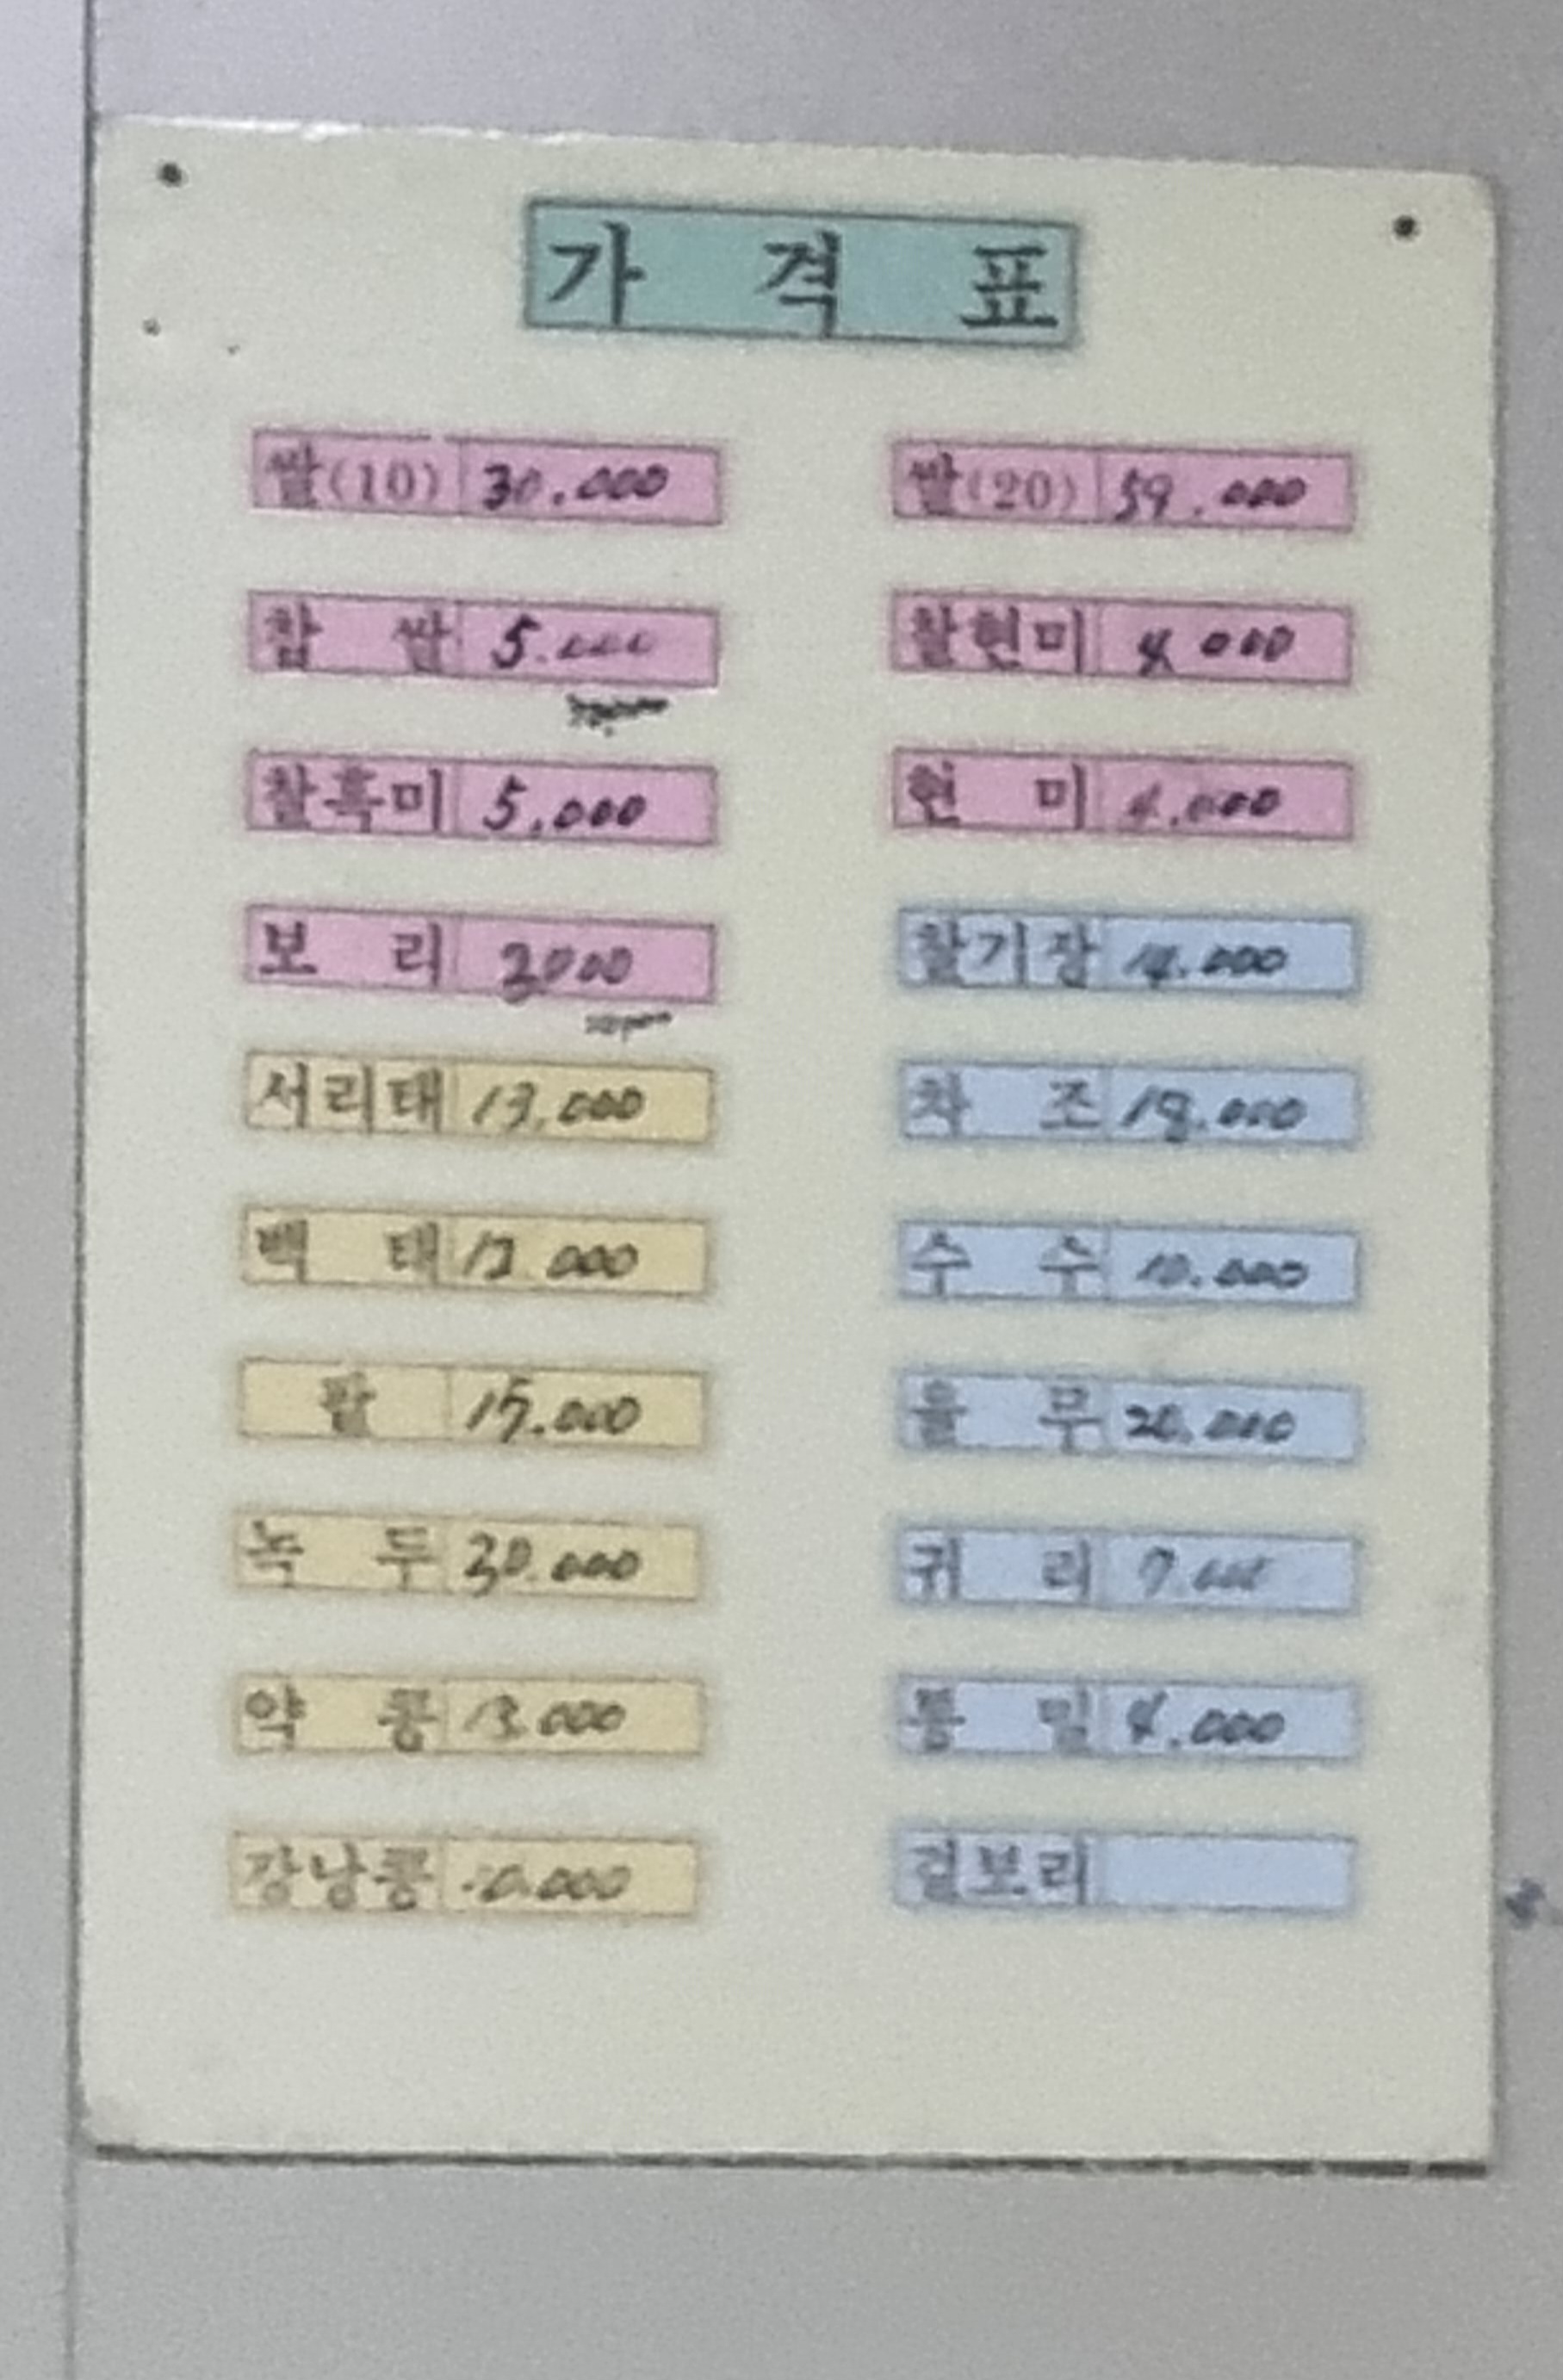 가 격 표
쌀(10) 30.000 쌀(20) 59.000
찹 쌀 5.000 찰현미 4.000
찰흑미 5.000 현 미 4.000
보 리 2000 찰기장 14.000
서리태 13.000 차 조 18.000
백 태 12.000 수 수 10.000
팥 15.000 율 무 20.000
녹 두 30.000 귀 리 7.000
약 콩 13.000 통 밀 4.000
강낭콩 겉보리